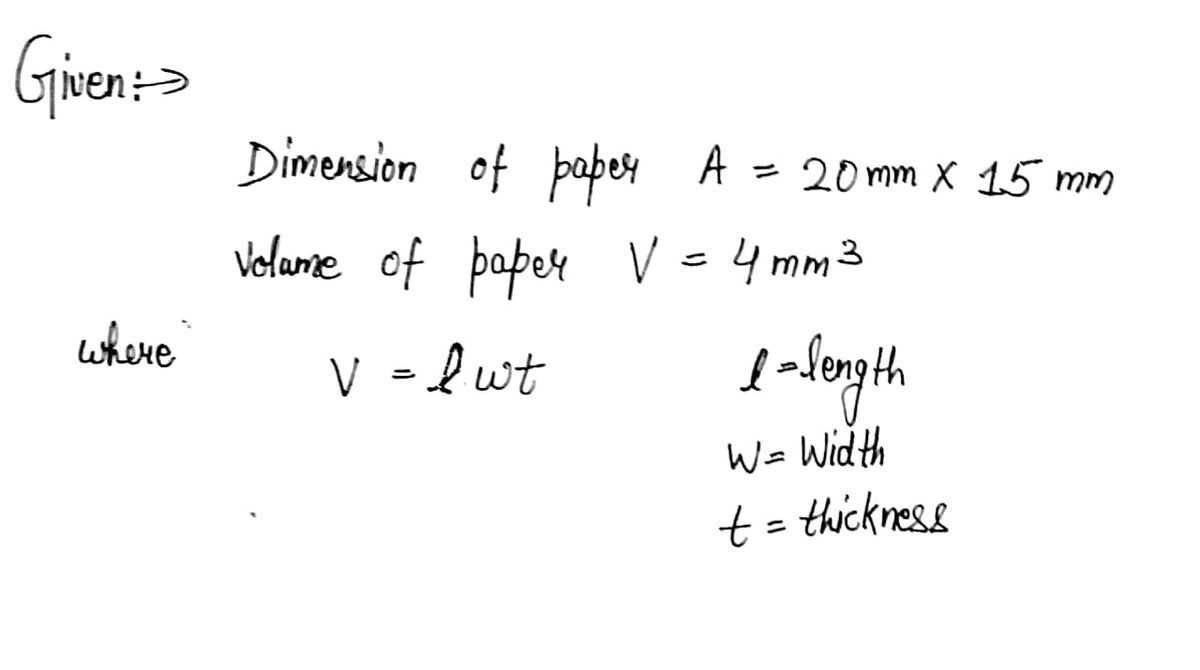 Given:⇒
Dimension of paper A = 20 mm X 15 mm
Volame of paper V = 4 mm³
where V = l wt l = length
W = Width
t = thickness